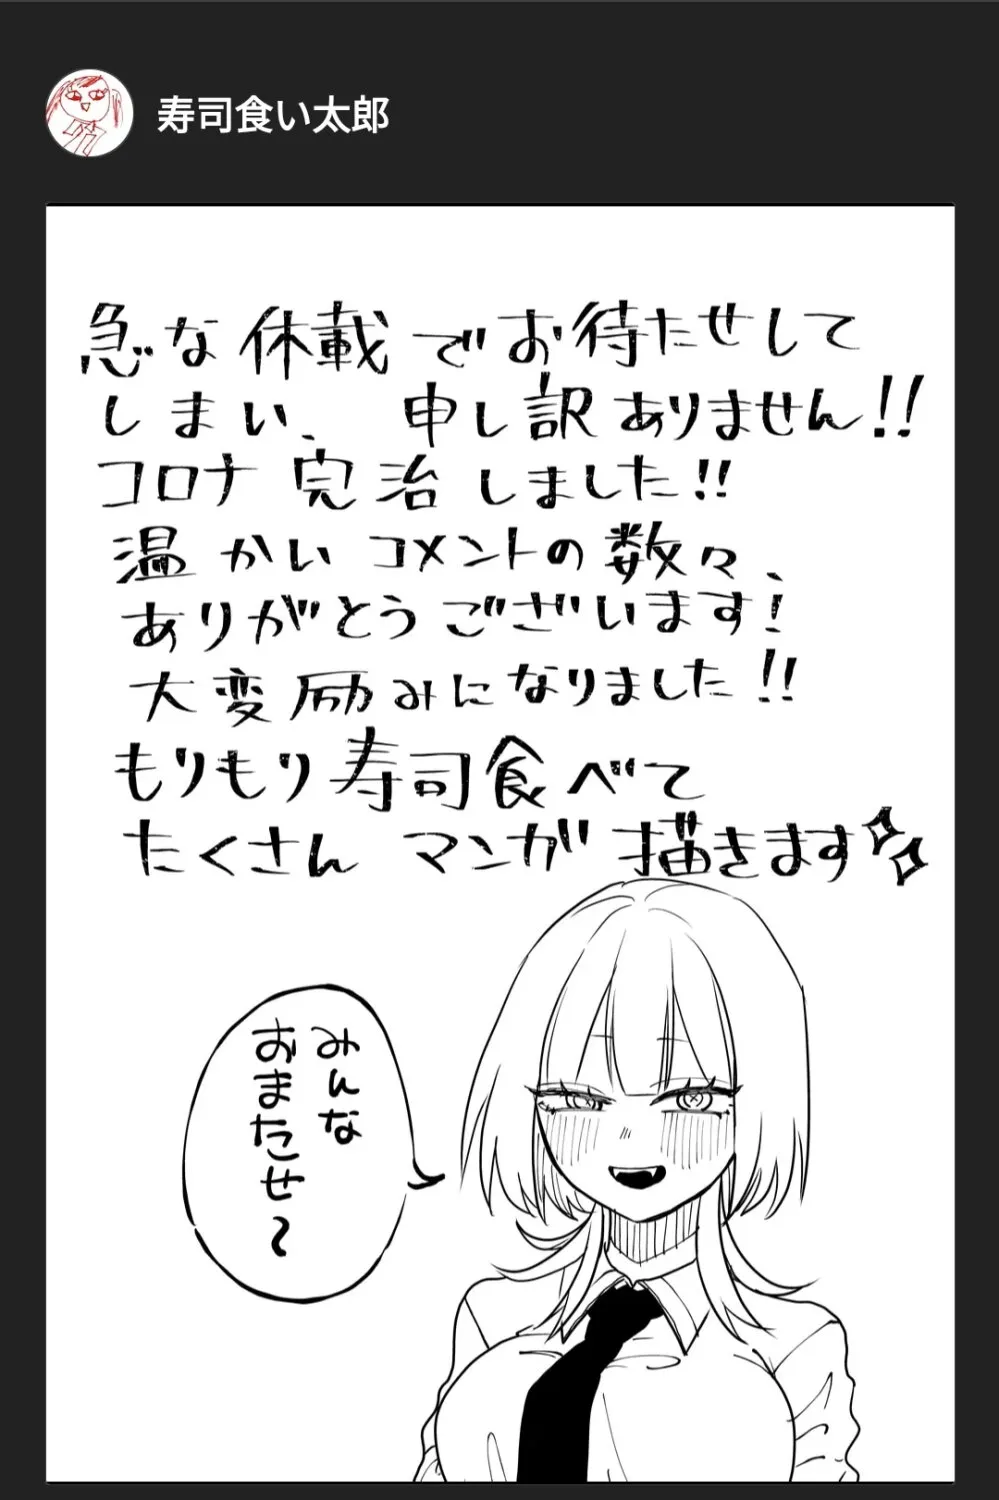 寿司食い太郎
急な休載でお待たせして
しまい、申し訳ありません!!
コロナ完治しました!!
温かいコメントの数々、
ありがとうございます!
大変励みになりました!!
もりもり寿司食べて
たくさんマンガ描きます
みんな
おまたせ〜